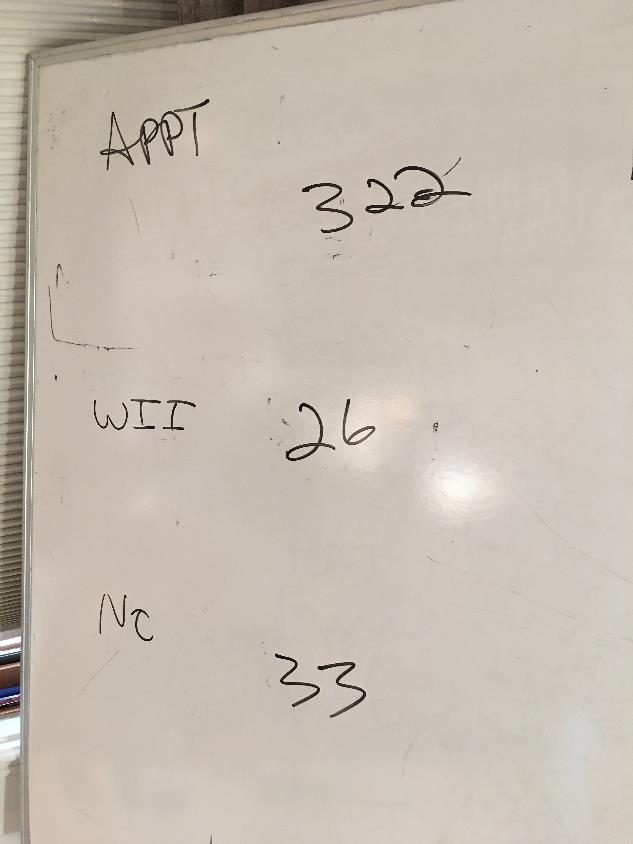 APPT
322
WII 26
NC
33